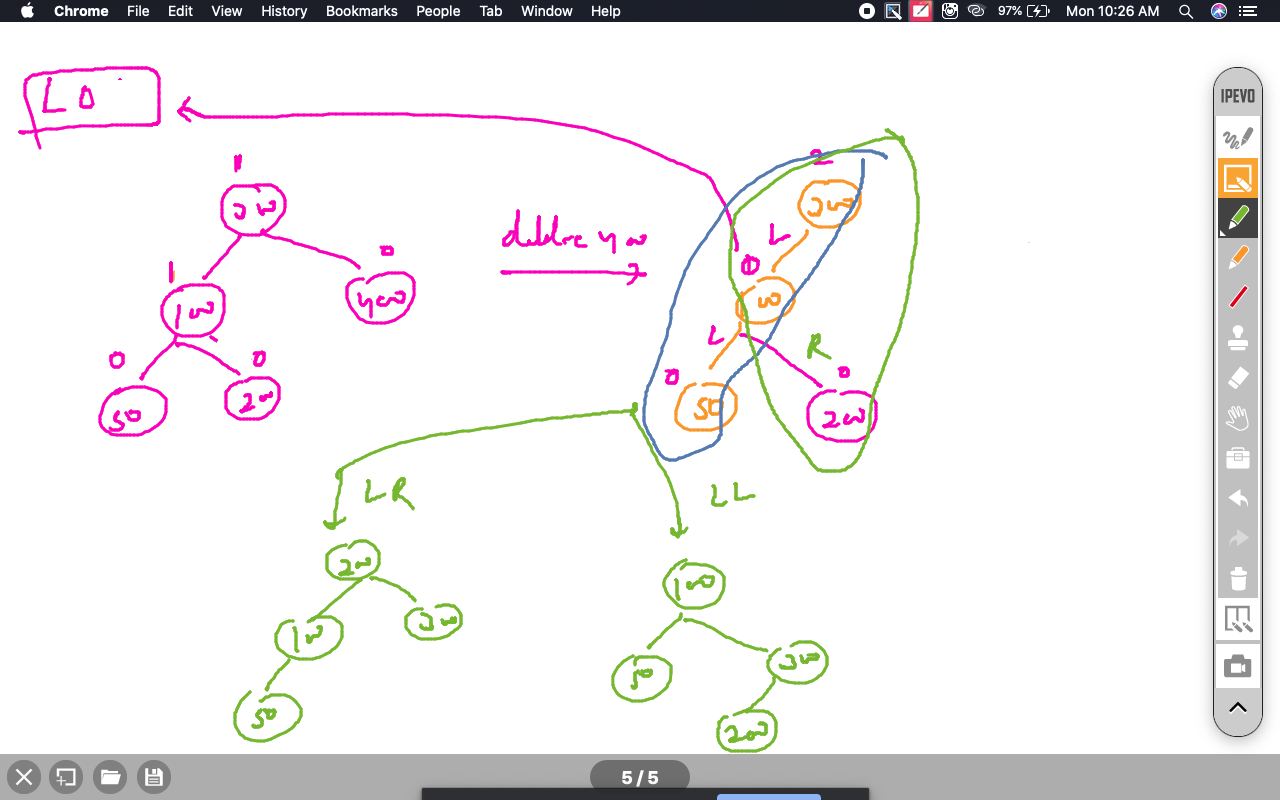 Chrome File Edit View History Bookmarks People Tab Window Help 97% Mon 10:26 AM
L0
IPEVO
1
300
1
100
0
400
0
50
0
200
delete 400
2
300
L
0
100
L
R
0
50
0
200
LR
LL
200
100
300
50
100
50
300
200
5 / 5